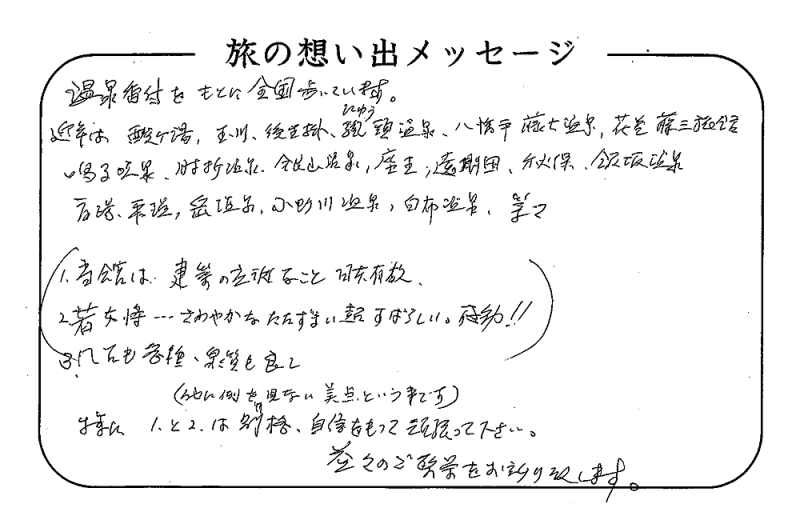 旅の想い出メッセージ
温泉番付をもとに全国歩いています。
近年は 酸ヶ湯、玉川、後生掛、乳頭温泉、八幡平 藤七温泉、花巻 藤三旅館
にゅう
鳴子温泉、肘折温泉、温泉、蔵王、遠刈田、秋保、飯坂温泉
高湯、岳温泉、小野川温泉、白布温泉、等々
1. 当館は、建築の立派なこと 日本有数、
2. 若女将…さわやかなたたずまい 超すばらしい。感動!!
3. 風呂も各種、泉質も良し
(他に例を見ない美点という事です)
特に 1. と 2. は 別格、自信をもって頑張って下さい。
益々のご繁栄をお祈り致します。